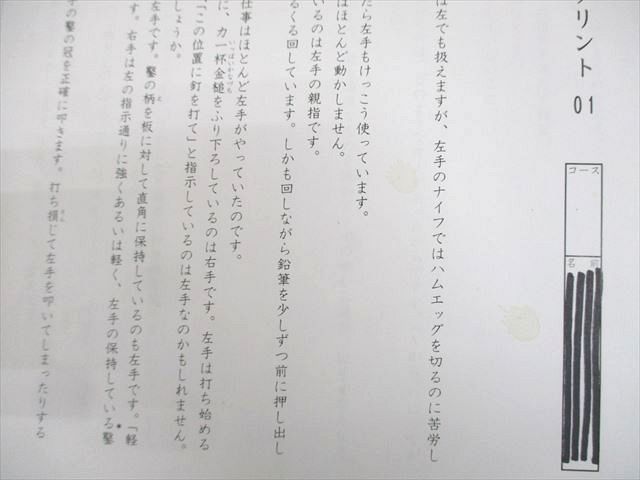 リント 01
コース
名前
は左でも扱えますが、左手のナイフではハムエッグを切るのに苦労し
たら左手もけっこう使っています。
はほとんど動かしません。
いるのは左手の親指です。
くるくる回しています。しかも回しながら鉛筆を少しずつ前に押し出し
仕事はほとんど左手がやっていたのです。
に、力一杯金槌をふり下ろしているのは右手です。左手は打ち始める
「この位置に釘を打て」と指示しているのは左手なのかもしれません。
しょうか。
左手です。鑿の柄を板に対して直角に保持しているのも左手です。「軽
す。右手は左の指示通りに強くあるいは軽く、左手の保持している鑿
の鑿の冠を正確に叩きます。打ち損じて左手を叩いてしまったりする